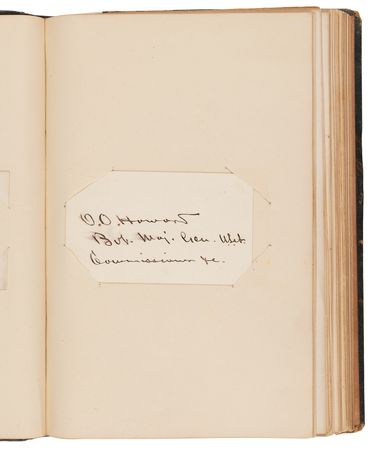 O. O. Howard
Bvt. Maj. Gen. Vols.
Commissioner &c.